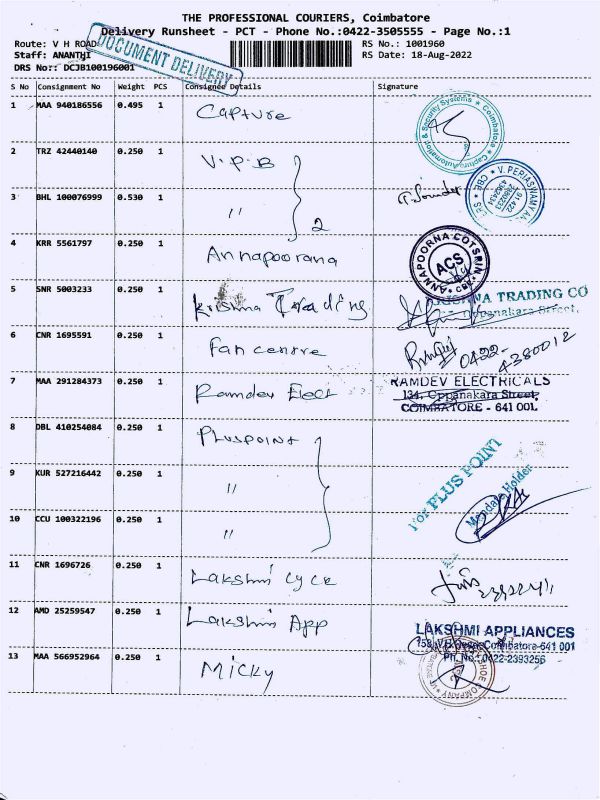 THE PROFESSIONAL COURIERS, Coimbatore
Delivery Runsheet - PCT - Phone No.:0422-3505555 - Page No.:1
Route: V H ROAD
RS No.: 1001960
Staff: ANANTHI
RS Date: 18-Aug-2022
DRS No:: DCJB100196001
DOCUMENT DELIVERY
S No Consignment No Weight PCS Consignee Details Signature
1 MAA 940186556 0.495 1 Capture
Capture Automation & Security Systems * Coimbatore *
2 TRZ 42440140 0.250 1 V.P.B
3 BHL 100076999 0.530 1 " 2
V. PERIASWAMY AN
CBE
4 KRR 5561797 0.250 1 Annapoorana
ANNAPOORNA COTSPIN
ACS
5 SNR 5003233 0.250 1 Krishna Trading
KRISHNA TRADING CO
Oppanakara Street,
6 CNR 1695591 0.250 1 Fan centre
0422-
4380012
7 MAA 291284373 0.250 1 Ramdev Elect
RAMDEV ELECTRICALS
134, Oppanakara Street,
COIMBATORE - 641 001.
8 DBL 410254084 0.250 1 Pluspoint
9 KUR 527216442 0.250 1 "
10 CCU 100322196 0.250 1 "
For PLUS POINT
Mandate Holder
11 CNR 1696726 0.250 1 Lakshmi cycle
12 AMD 25259547 0.250 1 Lakshmi App
LAKSHMI APPLIANCES
Coimbatore-641 001
Ph. No.: 0422-2393256
13 MAA 566952964 0.250 1 Micky
SHOE COMPANY